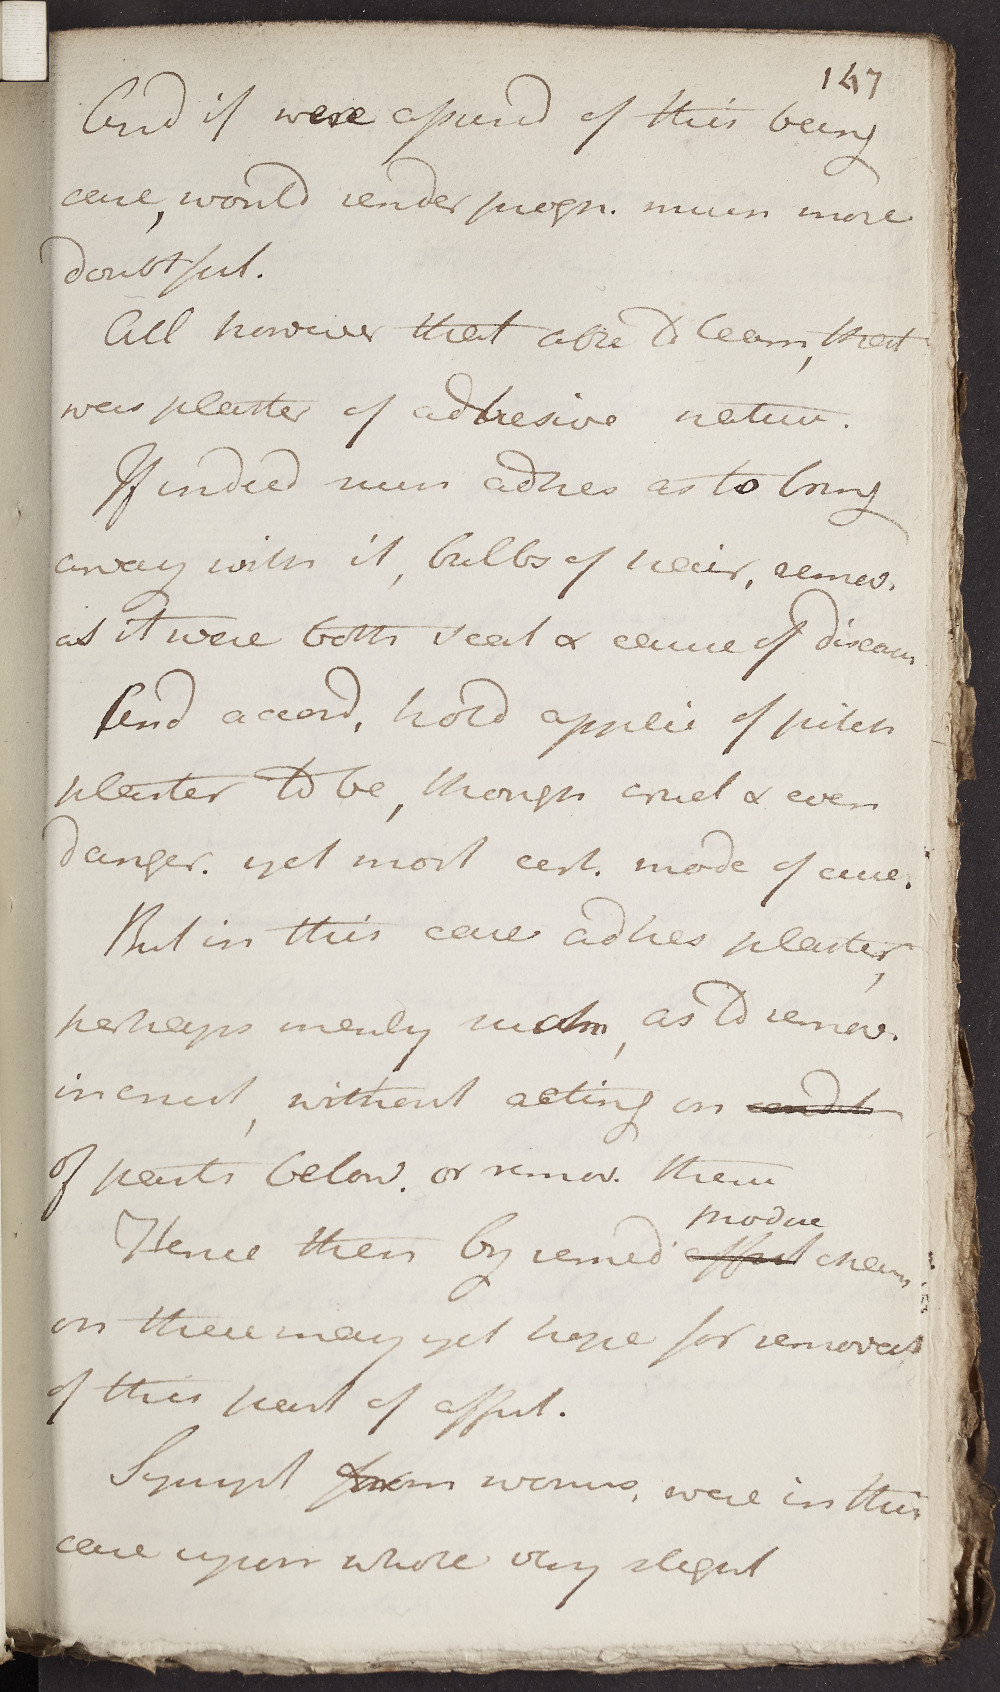 147
And if were assured of this being
case, would render progn. much more
doubtful.
All however that able to learn, that
was plaster of adhesive nature.
If indeed such adhes as to bring
away with it, bulbs of hair, remov.
as it were both seat & cause of disease
And accord. hold applic of pitch
plaster to be, though cruel & even
danger. yet most cert. mode of cure.
But in this case adhes plaster,
perhaps merely such, as to remov.
incrust, without acting on condit
of parts below. or remov. them
modue
Hence then by remed affect
on these may yet hope for removal
of this part of affect.
Sympt from worms, were in this
case upon whole very slight